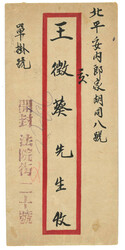 北平安內郎家胡同八號
王徵葵先生收
單掛號
開封法院街二十號